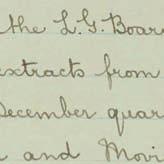 the L. G. Boar
extracts from
December quar
and